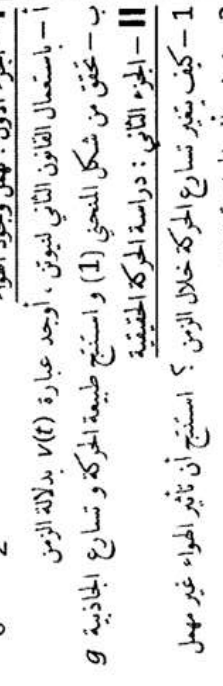 I – الجزء الأول : نهمل وجود الهواء
أ – باستعمال القانون الثاني لنيوتن ، أوجد عبارة v(t) بدلالة الزمن
ب – تحقق من شكل المنحني (1) و استنتج طبيعة الحركة و تسارع الجاذبية g
II – الجزء الثاني : دراسة الحركة الحقيقية
1 – كيف يتغير تسارع الحركة خلال الزمن ؟ استنتج أن تأثير الهواء غير مهمل